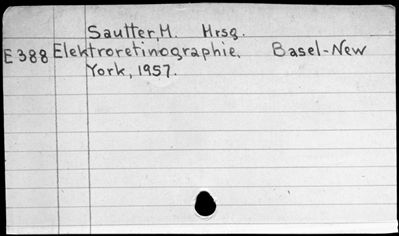 Sautter, M. Hrsg.
E 388 Elektroretinographie. Basel-New
York, 1957.